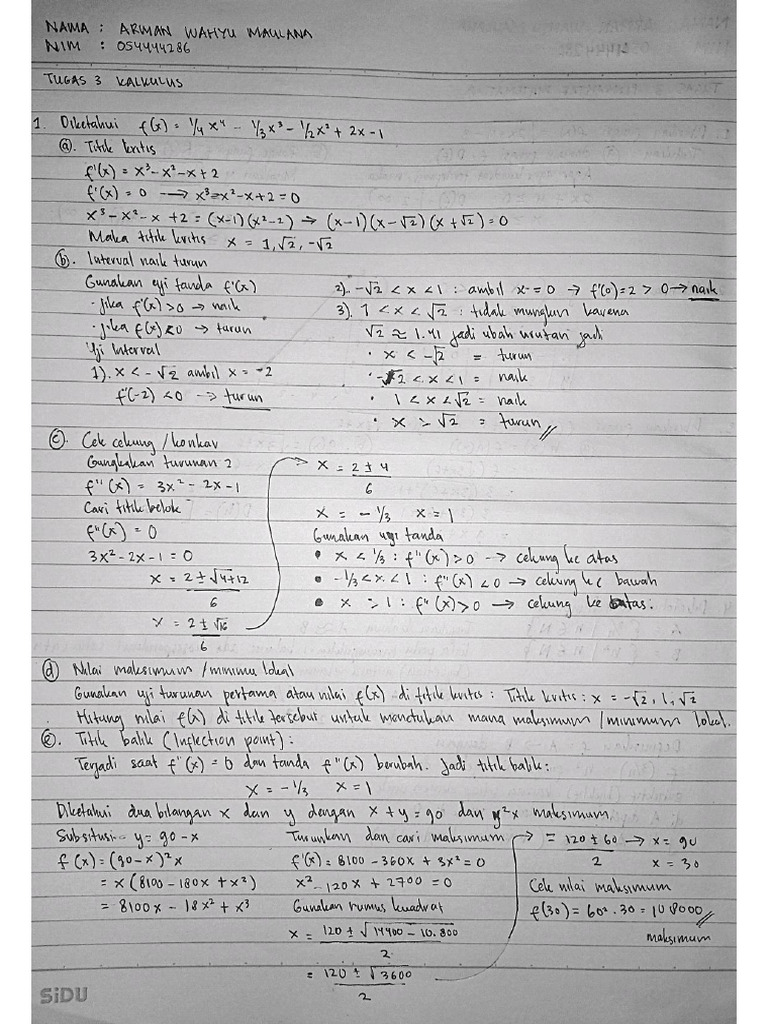 NAMA : ARMAN WAHYU MAULANA
NIM : 054444286
TUGAS 3 KALKULUS
1. Diketahui f(x) = 1/4 x⁴ - 1/3 x³ - 1/2 x² + 2x - 1
(a). Titik kritis
f'(x) = x³ - x² - x + 2
f'(x) = 0 → x³ - x² - x + 2 = 0
x³ - x² - x + 2 = (x-1)(x²-2) → (x-1)(x-√2)(x+√2) = 0
Maka titik kritis x = 1, √2, -√2
(b). Interval naik turun
Gunakan uji tanda f'(x)
- Jika f'(x) > 0 → naik
- Jika f'(x) < 0 → turun
Uji Interval
1). x < -√2 ambil x = -2
f'(-2) < 0 → turun
2). -√2 < x < 1 : ambil x = 0 → f'(0) = 2 > 0 → naik
3). 1 < x < √2 : tidak mungkin karena
√2 ≈ 1.41 jadi ubah urutan jadi
• x < -√2 = turun
• -√2 < x < 1 = naik
• 1 < x < √2 = naik
• x > √2 = turun //
(c). Cek cekung / konkav
Gungkakan turunan 2
f''(x) = 3x² - 2x - 1
Cari titik belok
f''(x) = 0
3x² - 2x - 1 = 0
x = 2 ± √4+12 / 6
x = 2 ± √16 / 6
x = 2 ± 4 / 6
x = -1/3 x = 1
Gunakan uji tanda
• x < 1/3 : f''(x) > 0 --> cekung ke atas
• -1/3 < x < 1 : f''(x) < 0 → cekung ke bawah
• x > 1 : f''(x) > 0 → cekung ke atas.
(d) Nilai maksimum / minimu lokal
Gunakan uji turunan pertama atau nilai f(x) di titik kritis : Titik kritis : x = -√2, 1, √2
Hitung nilai f(x) di titik tersebut untuk menetukan mana maksimum / minimum lokal.
(e). Titik balik (Inflection point) :
Terjadi saat f''(x) = 0 dan tanda f''(x) berubah. Jadi titik balik :
x = -1/3 x = 1
Diketahui dua bilangan x dan y dengan x + y = 90 dan y²x maksimum
Subsitusi - y = 90 - x
f(x) = (90-x)² x
= x (8100 - 180x + x²)
= 8100x - 18x² + x³
Turunkan dan cari maksimum
f'(x) = 8100 - 360x + 3x² = 0
x² - 120x + 2700 = 0
Gunakan rumus kuadrat
x = 120 ± √14400 - 10.800 / 2
= 120 ± √3600 / 2
= 120 ± 60 / 2 → x = 90
x = 30
Cek nilai maksimum
f(30) = 60² . 30 = 108000 //
maksimum
SiDU